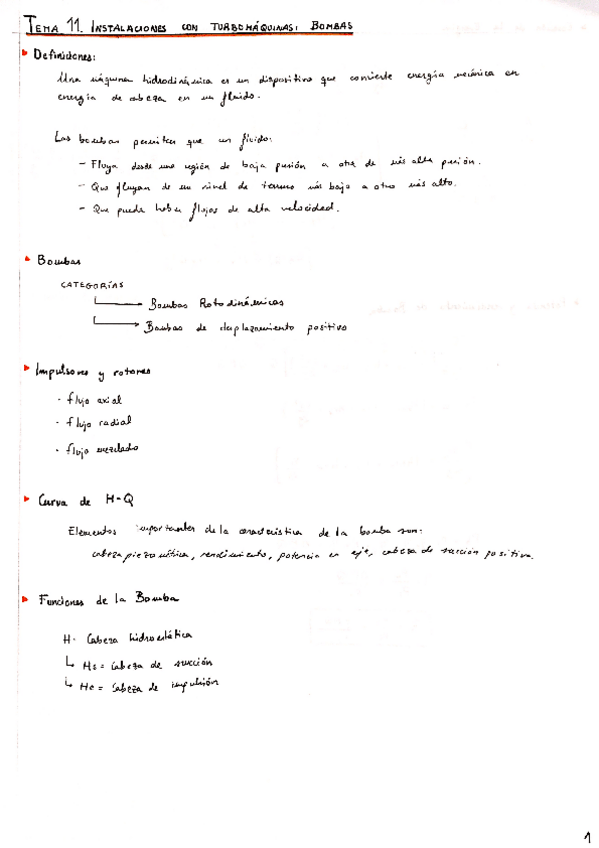 TEMA 11. INSTALACIONES CON TURBOMÁQUINAS: BOMBAS
Definiciones:
Una máquina hidrodinámica es un dispositivo que convierte energía mecánica en
energía de cabeza en un fluido.
Las bombas permiten que un fluido:
- Fluya desde una región de baja presión a otra de más alta presión.
- Que fluyan de un nivel de terreno más bajo a otro más alto.
- Que puede haber flujos de alta velocidad.
Bombas
CATEGORÍAS
Bombas Rotodinámicas
Bombas de desplazamiento positivo
Impulsores y rotores
· flujo axial
· flujo radial
· flujo mezclado
Curva de H-Q
Elementos importantes de la característica de la bomba son:
cabeza piezométrica, rendimiento, potencia en eje, cabeza de succión positiva.
Funciones de la Bomba
H- Cabeza hidrostática
Hs = Cabeza de succión
He = Cabeza de impulsión
1